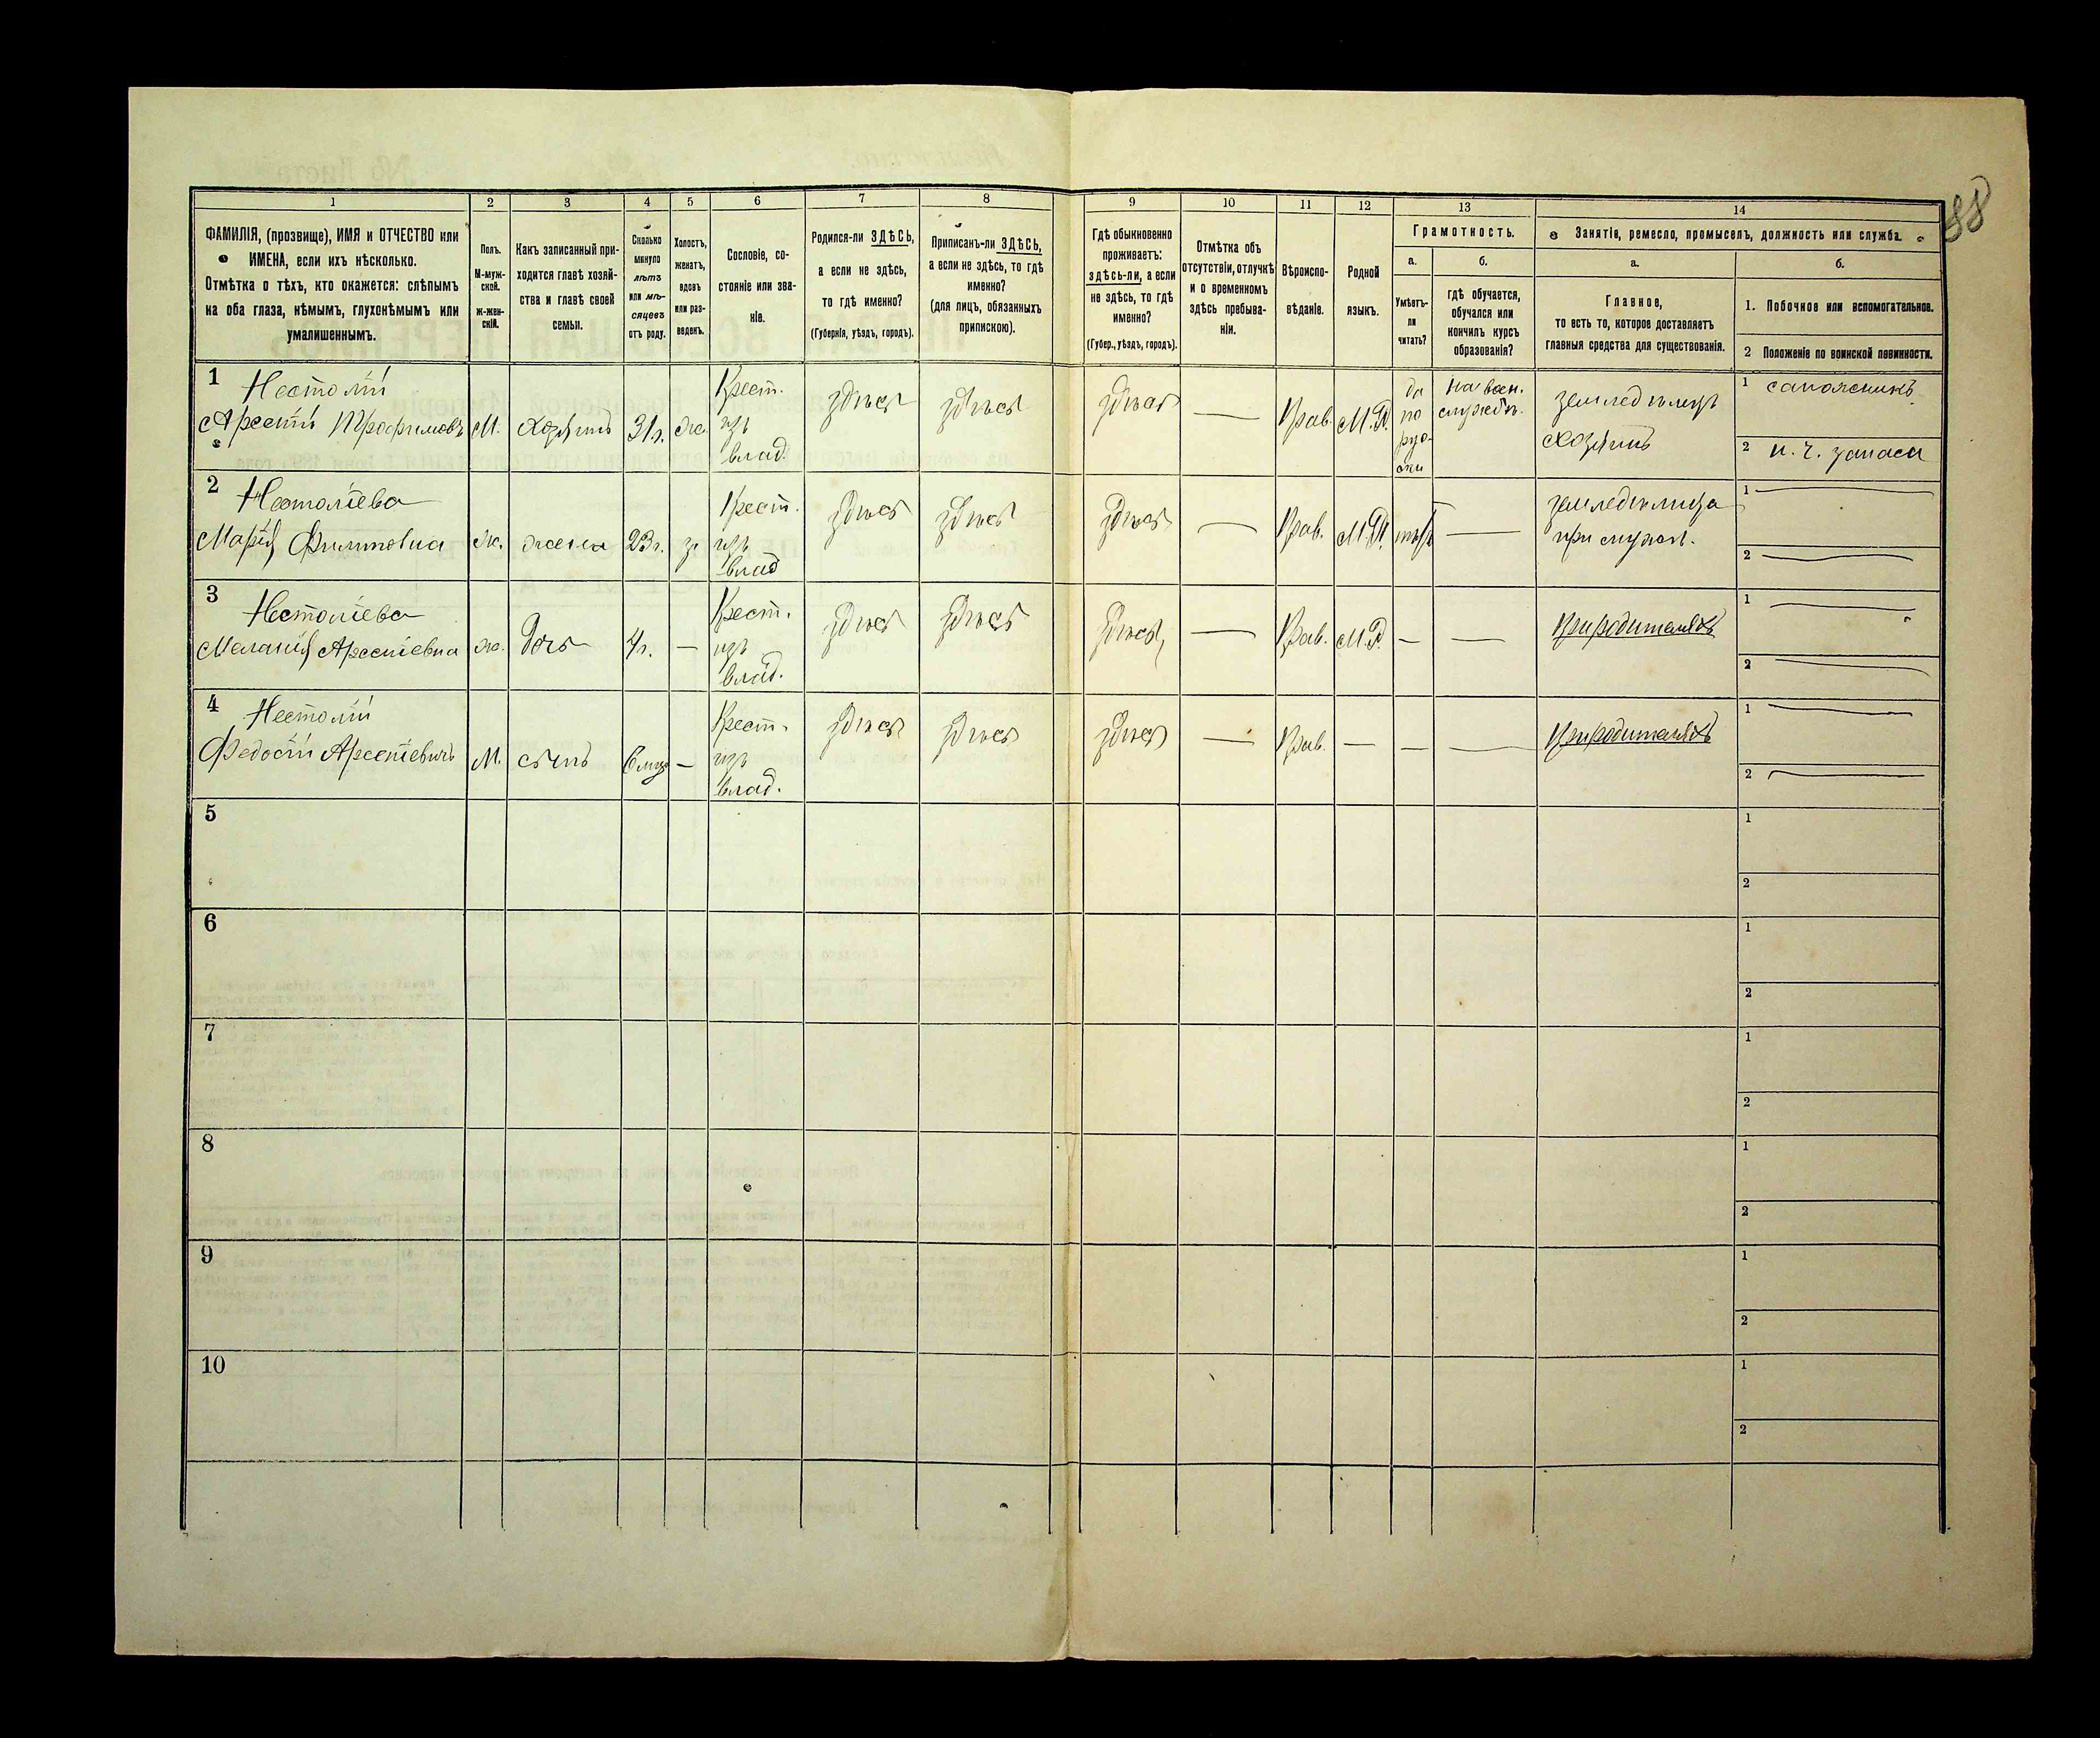 88
1 2 3 4 5 6 7 8 9 10 11 12 13 14
ФАМИЛІЯ, (прозвище), ИМЯ и ОТЧЕСТВО или
ИМЕНА, если ихъ нѣсколько.
Отмѣтка о тѣхъ, кто окажется: слѣпымъ
на оба глаза, нѣмымъ, глухонѣмымъ или
умалишеннымъ.
Полъ.
М-муж-
ской.
ж-жен-
скій.
Какъ записанный при-
ходится главѣ хозяй-
ства и главѣ своей
семьи.
Сколько
минуло
лѣтъ
или мѣ-
сяцевъ
отъ роду.
Холостъ,
женатъ,
вдовъ
или раз-
веденъ.
Сословіе, со-
стояніе или зва-
ніе.
Родился-ли ЗДѢСЬ,
а если не здѣсь,
то гдѣ именно?
(Губернія, уѣздъ, городъ).
Приписанъ-ли ЗДѢСЬ,
а если не здѣсь, то гдѣ
именно?
(для лицъ, обязанныхъ
припискою).
Гдѣ обыкновенно
проживаетъ:
здѣсь-ли, а если
не здѣсь, то гдѣ
именно?
(Губер., уѣздъ, городъ).
Отмѣтка объ
отсутствіи, отлучкѣ
и о временномъ
здѣсь пребыва-
ніи.
Вѣроиспо-
вѣданіе.
Родной
языкъ.
Грамотность.
а.
Умѣетъ-
ли
читать?
б.
гдѣ обучается,
обучался или
кончилъ курсъ
образованія?
Занятіе, ремесло, промыселъ, должность или служба.
а.
Главное,
то есть то, которое доставляетъ
главныя средства для существованія.
б.
1. Побочное или вспомогательное.
2 Положеніе по воинской повинности.
1
Арсентій Трофимовъ М. хозяинъ 31 г. ж. Крест.
изъ
влад. здѣсь здѣсь здѣсь — Прав. М.Р. да
по
рус-
ски на воен.
службѣ. земледѣлецъ
хозяинъ
1 сапожникъ
2 н. ч. запаса
2
Марія Филиповна ж. жена 23 г. з. Крест.
изъ
влад здѣсь здѣсь здѣсь — Прав. М.Р. нѣтъ — земледѣлица
при мужѣ.
1 —
2 —
3
Меланія Арсеніевна ж. дочь 4 г. — Крест.
изъ
влад. здѣсь здѣсь здѣсь — Прав. М.Р. — — При родителяхъ
1 —
2 —
4
Федосій Арсеніевичъ М. сынъ 6 мц — Крест.
изъ
влад. здѣсь здѣсь здѣсь — Прав. — — — При родителяхъ
1 —
2 —
5
1
2
6
1
2
7
1
2
8
1
2
9
1
2
10
1
2